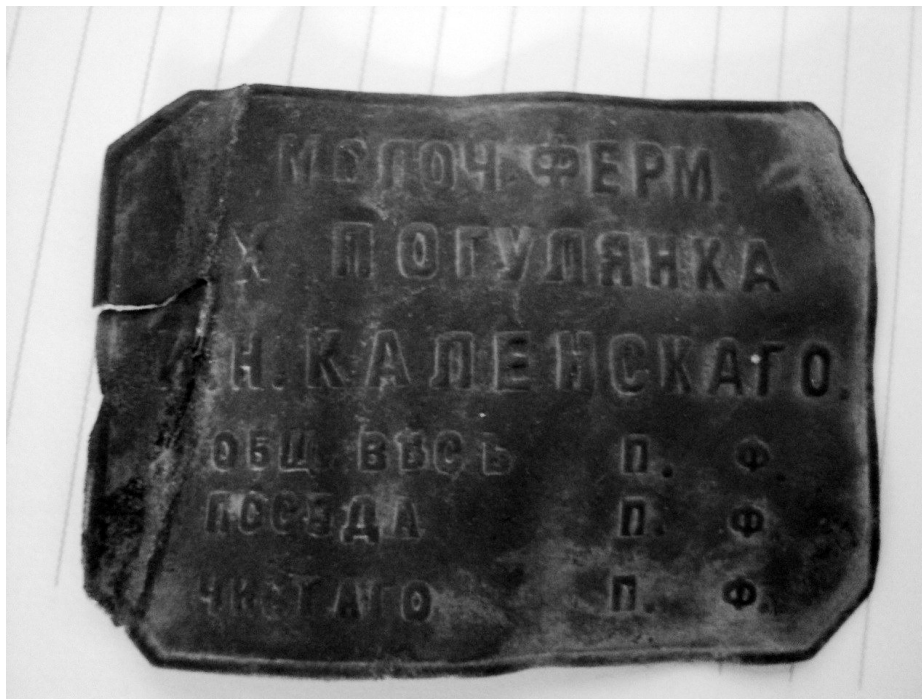 МОЛОЧ. ФЕРМ.
Х. ПОГУЛЯНКА
Н. КАЛЕНСКАГО.
ОБЩ. ВѢСЪ П. Ф.
ПОСУДА П. Ф.
ЧИСТАГО П. Ф.